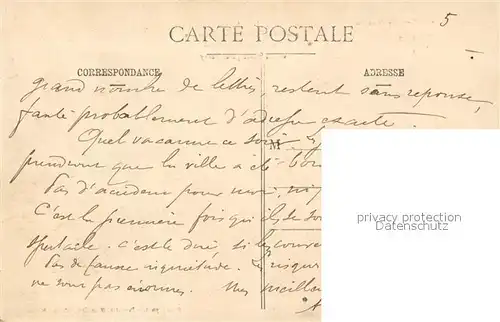 5
CARTE POSTALE
CORRESPONDANCE
ADRESSE
grand nombre de lettres restent sans reponse,
faute probablement d'adresse exacte.
Quel vacarme ce soir
M
prendront que la ville a été
Pas d'accident pour nous, ni
C'est la première fois qu'ils se
spectacle. c'est dire si les
Pas de fausse inquiétude. Les risques
ne sont pas énormes. Mes meilleu
privacy protection
Datenschutz